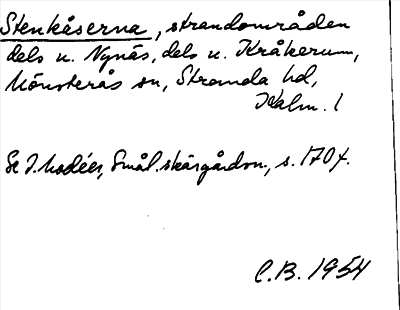 Stenkåserna, strandområden
dels u. Nynäs, dels u. Kråkerum,
Mönsterås sn, Stranda hd,
Kalm. l
Se J. Modéer, Smål. skärgårdsn., s. 170 f.
C.B. 1954